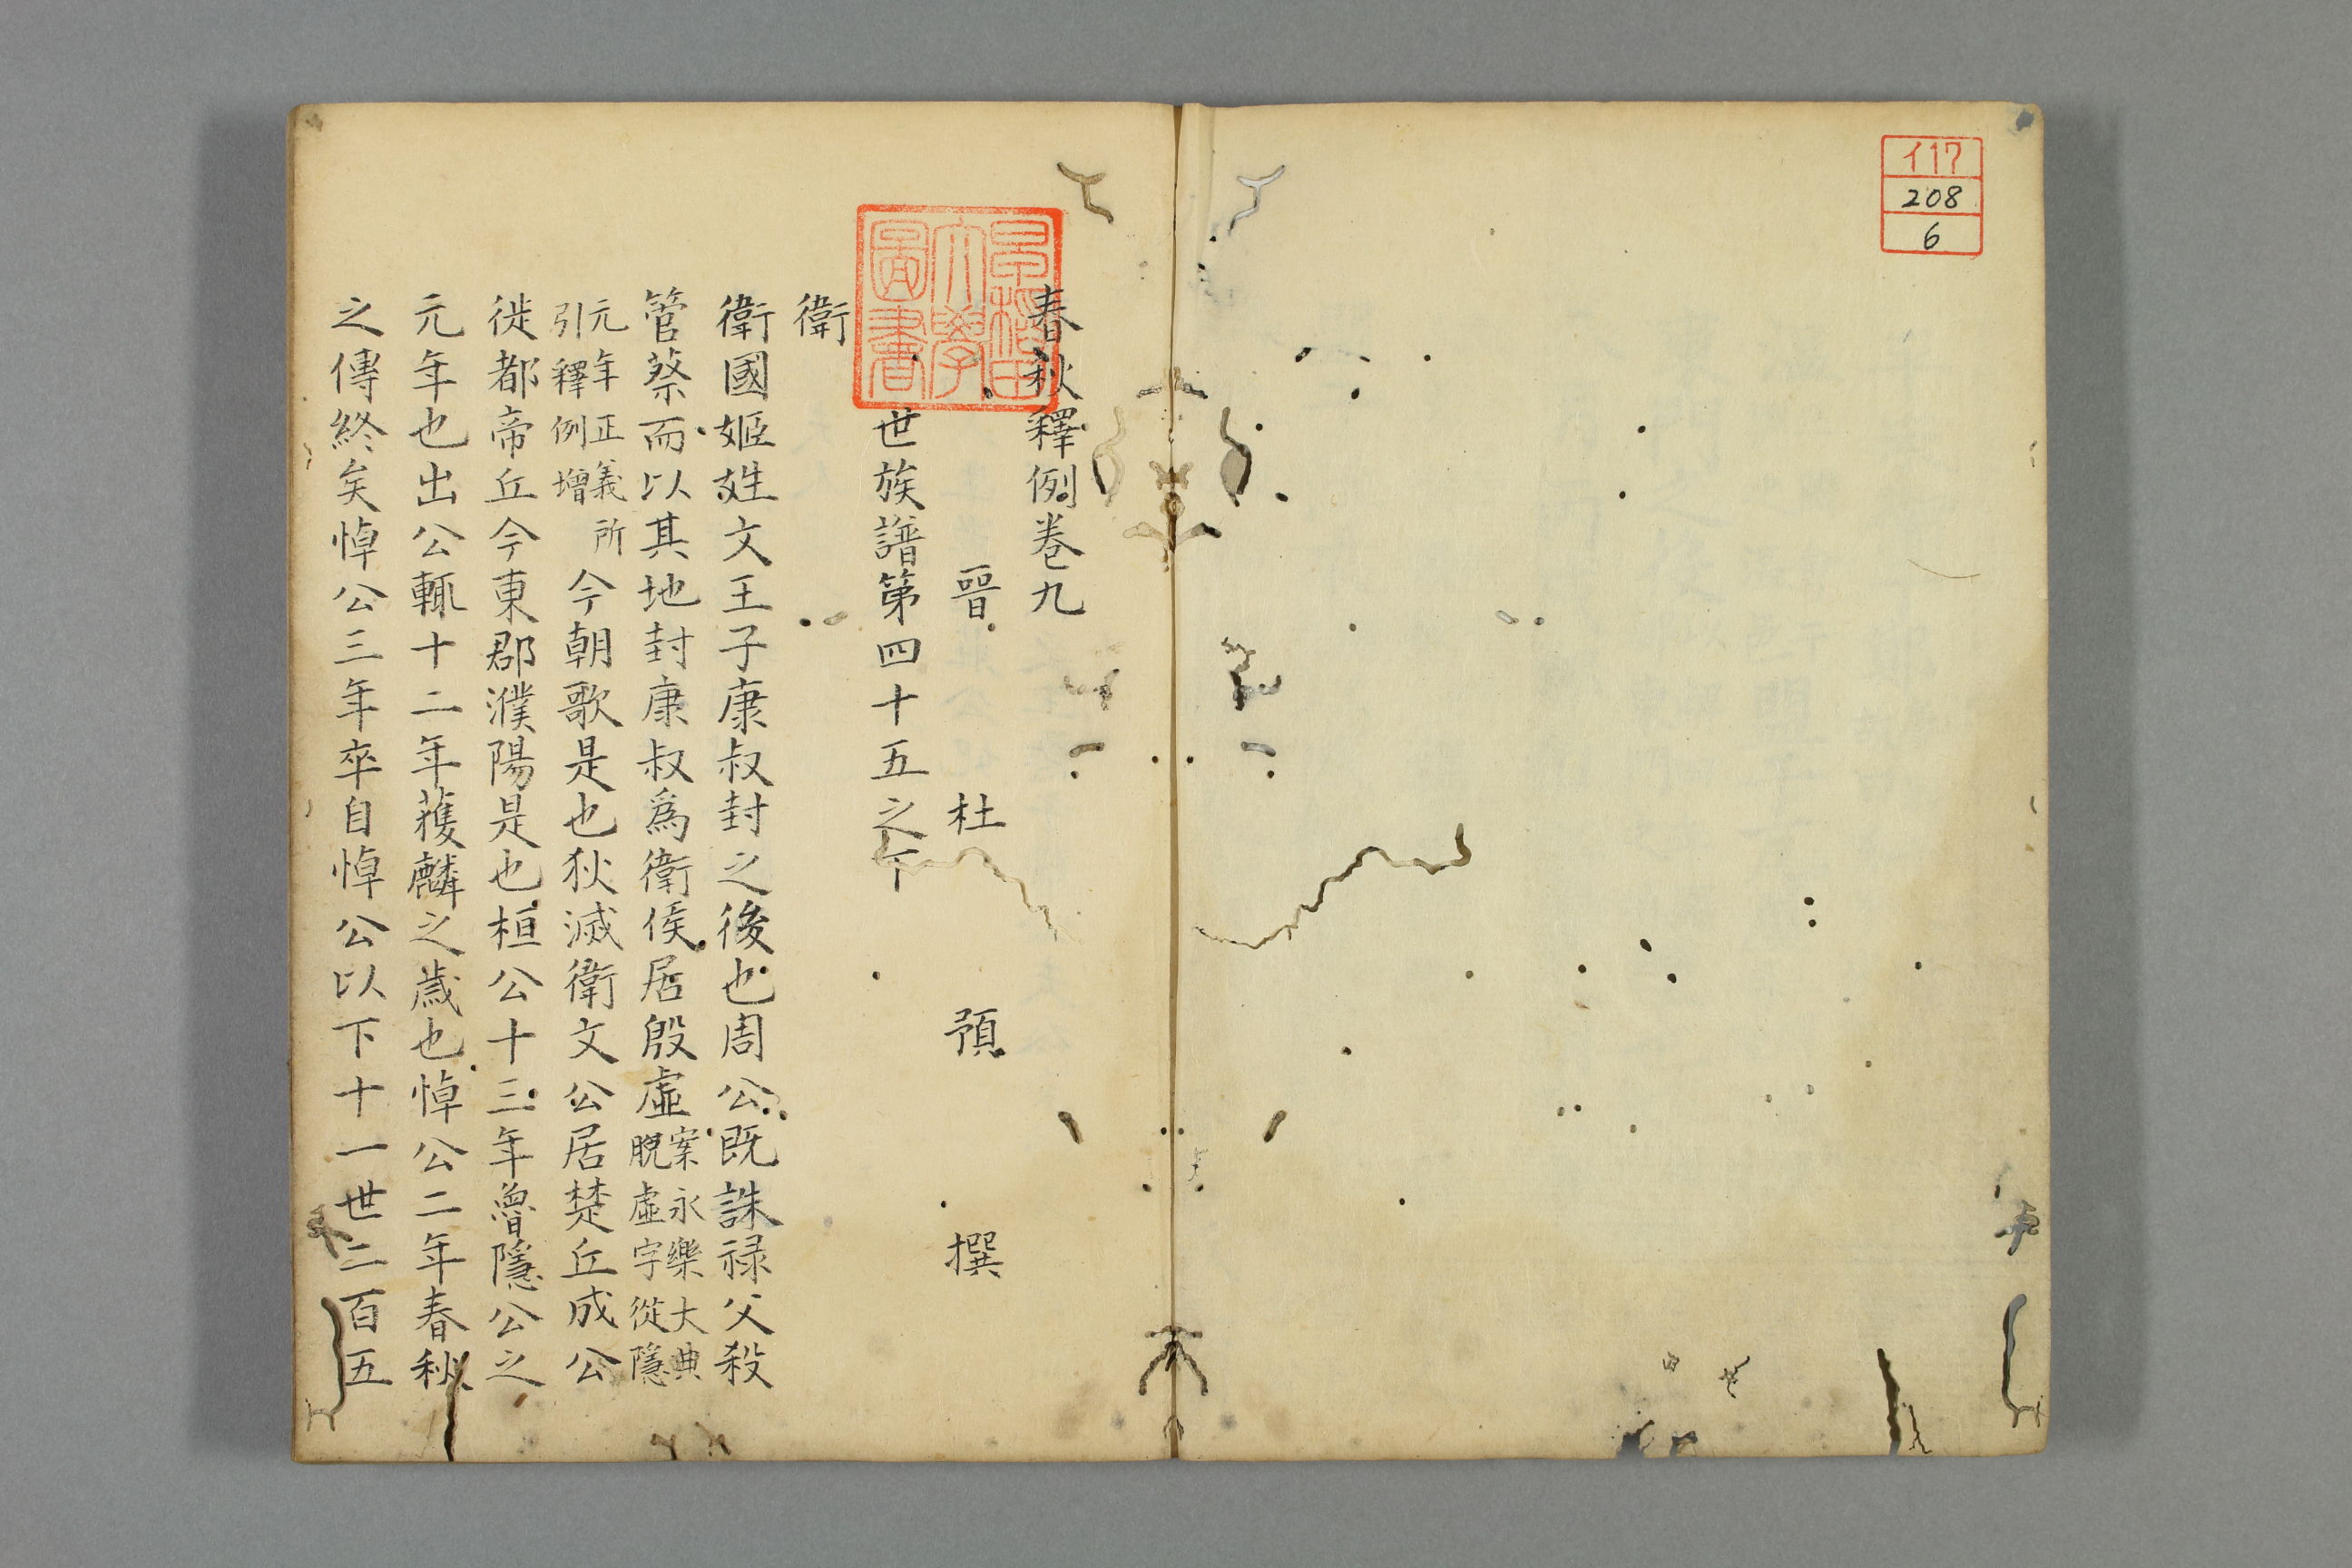 イ17
208
6
春秋釋例卷九
晉 杜 預 撰
世族譜第四十五之下
早稻田大學圖書
衛
衛國姬姓文王子康叔封之後也周公既誅祿父殺
管蔡而以其地封康叔爲衛侯居殷虛案永樂大典脫虛字從隱
元年正義所引釋例增今朝歌是也狄滅衛文公居楚丘成公
徙都帝丘今東郡濮陽是也桓公十三年魯隱公之
元年也出公輒十二年獲麟之歲也悼公二年春秋
之傳終矣悼公三年卒自悼公以下十一世二百五